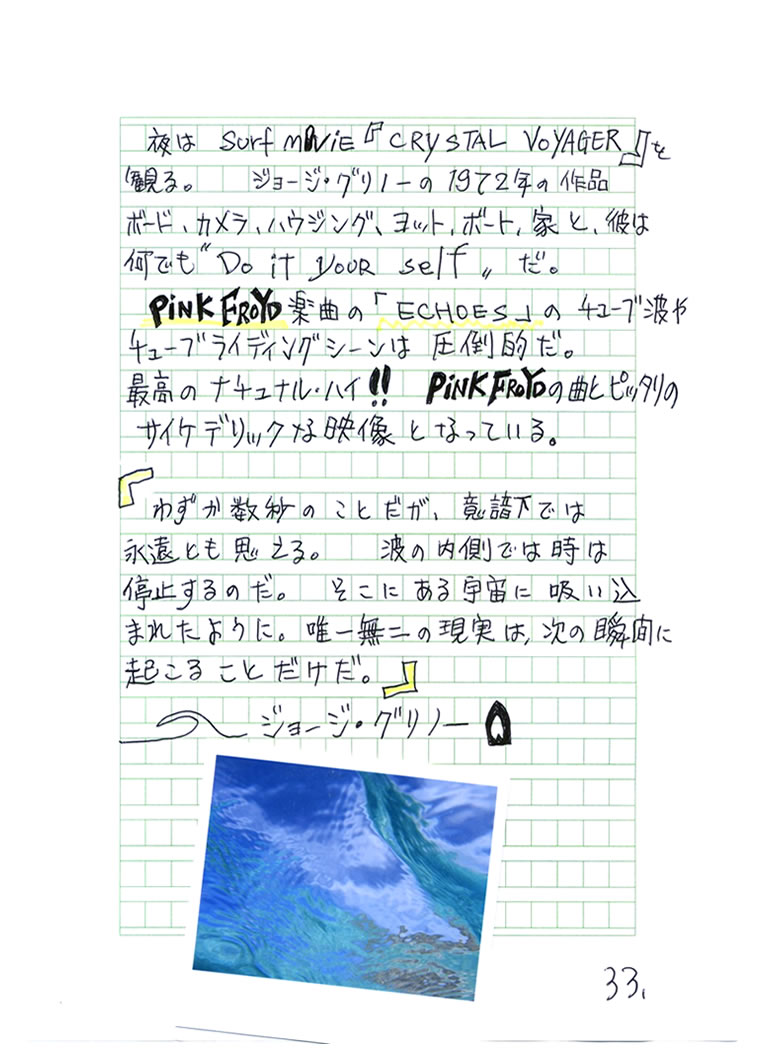 夜は Surf moviE『CRYSTAL VOYAGER』を
観る。 ジョージ・グリノーの1972年の作品
ボード、カメラ、ハウジング、ヨット、ボート、家と、彼は
何でも〝Do it your self〟だ。
PiNK FROYD 楽曲の「ECHOES」の チューブ波や
チューブライディングシーンは 圧倒的だ。
最高の ナチュナル・ハイ!! PiNK FROYDの曲とピッタリの
サイケデリックな映像 となっている。
『わずか数秒のことだが、意識下では
永遠とも思える。 波の内側では時は
停止するのだ。 そこにある宇宙に 吸い込
まれたように。唯一無二の現実は、次の瞬間に
起こることだけだ。』
ジョージ・グリノー
33.